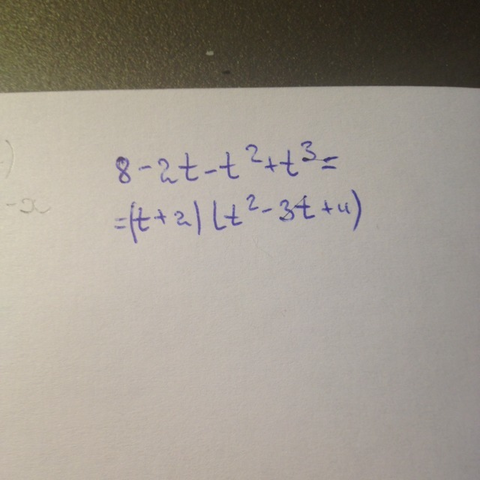 8-2t-t²+t³=
=(t+2)(t²-3t+4)
-x